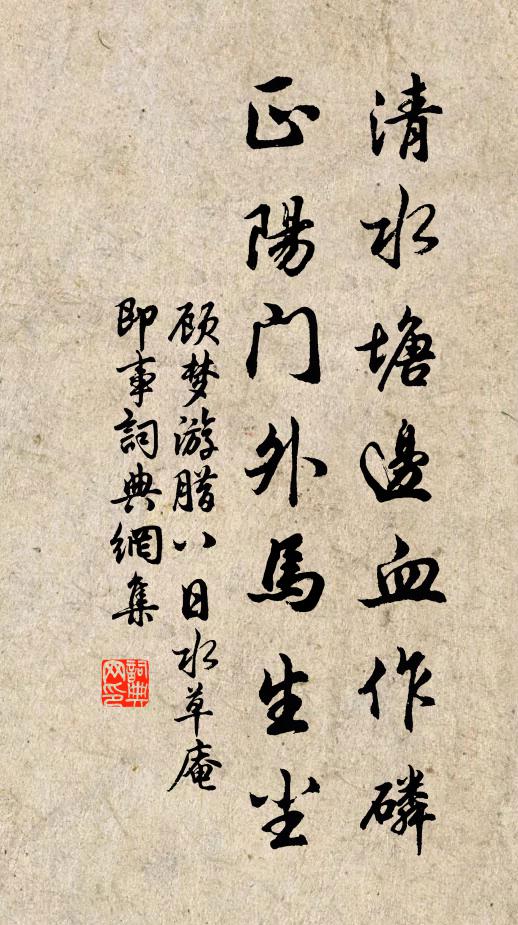 清水塘邊血作磷
正陽門外馬生尘
顾梦游腊八日水草庵
即事詞典網集
詞典
网印